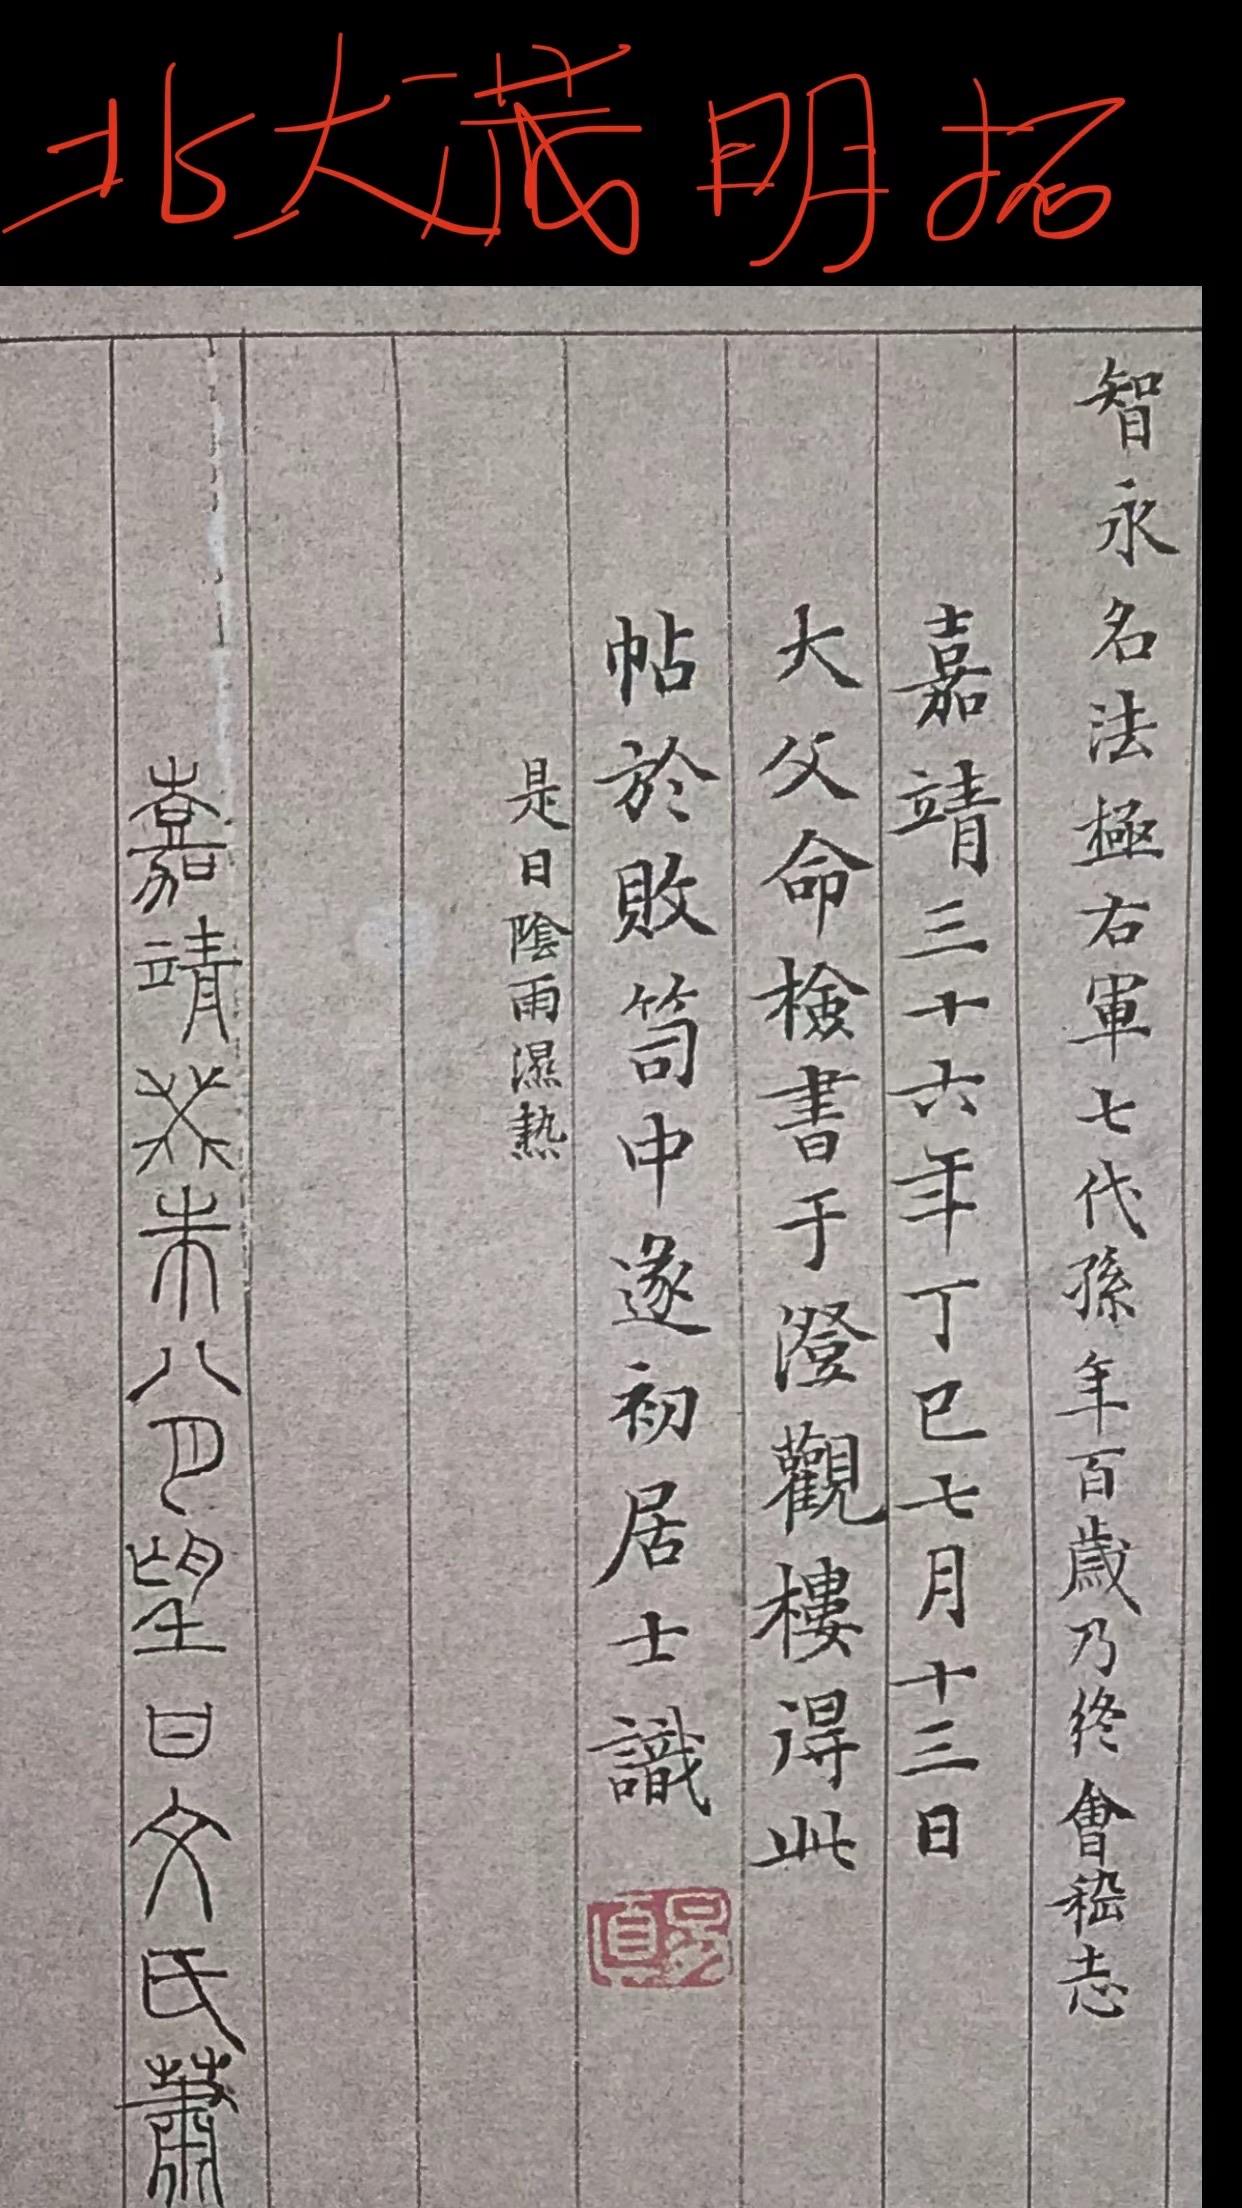 北大藏明拓
智永名法極右軍七代孫年百歲乃終會稽志
嘉靖三十六年丁巳七月十三日
大父命檢書于澄觀樓得此
帖於敗笥中遂初居士識
是日陰雨濕熱
嘉靖癸未八月望日文氏肅